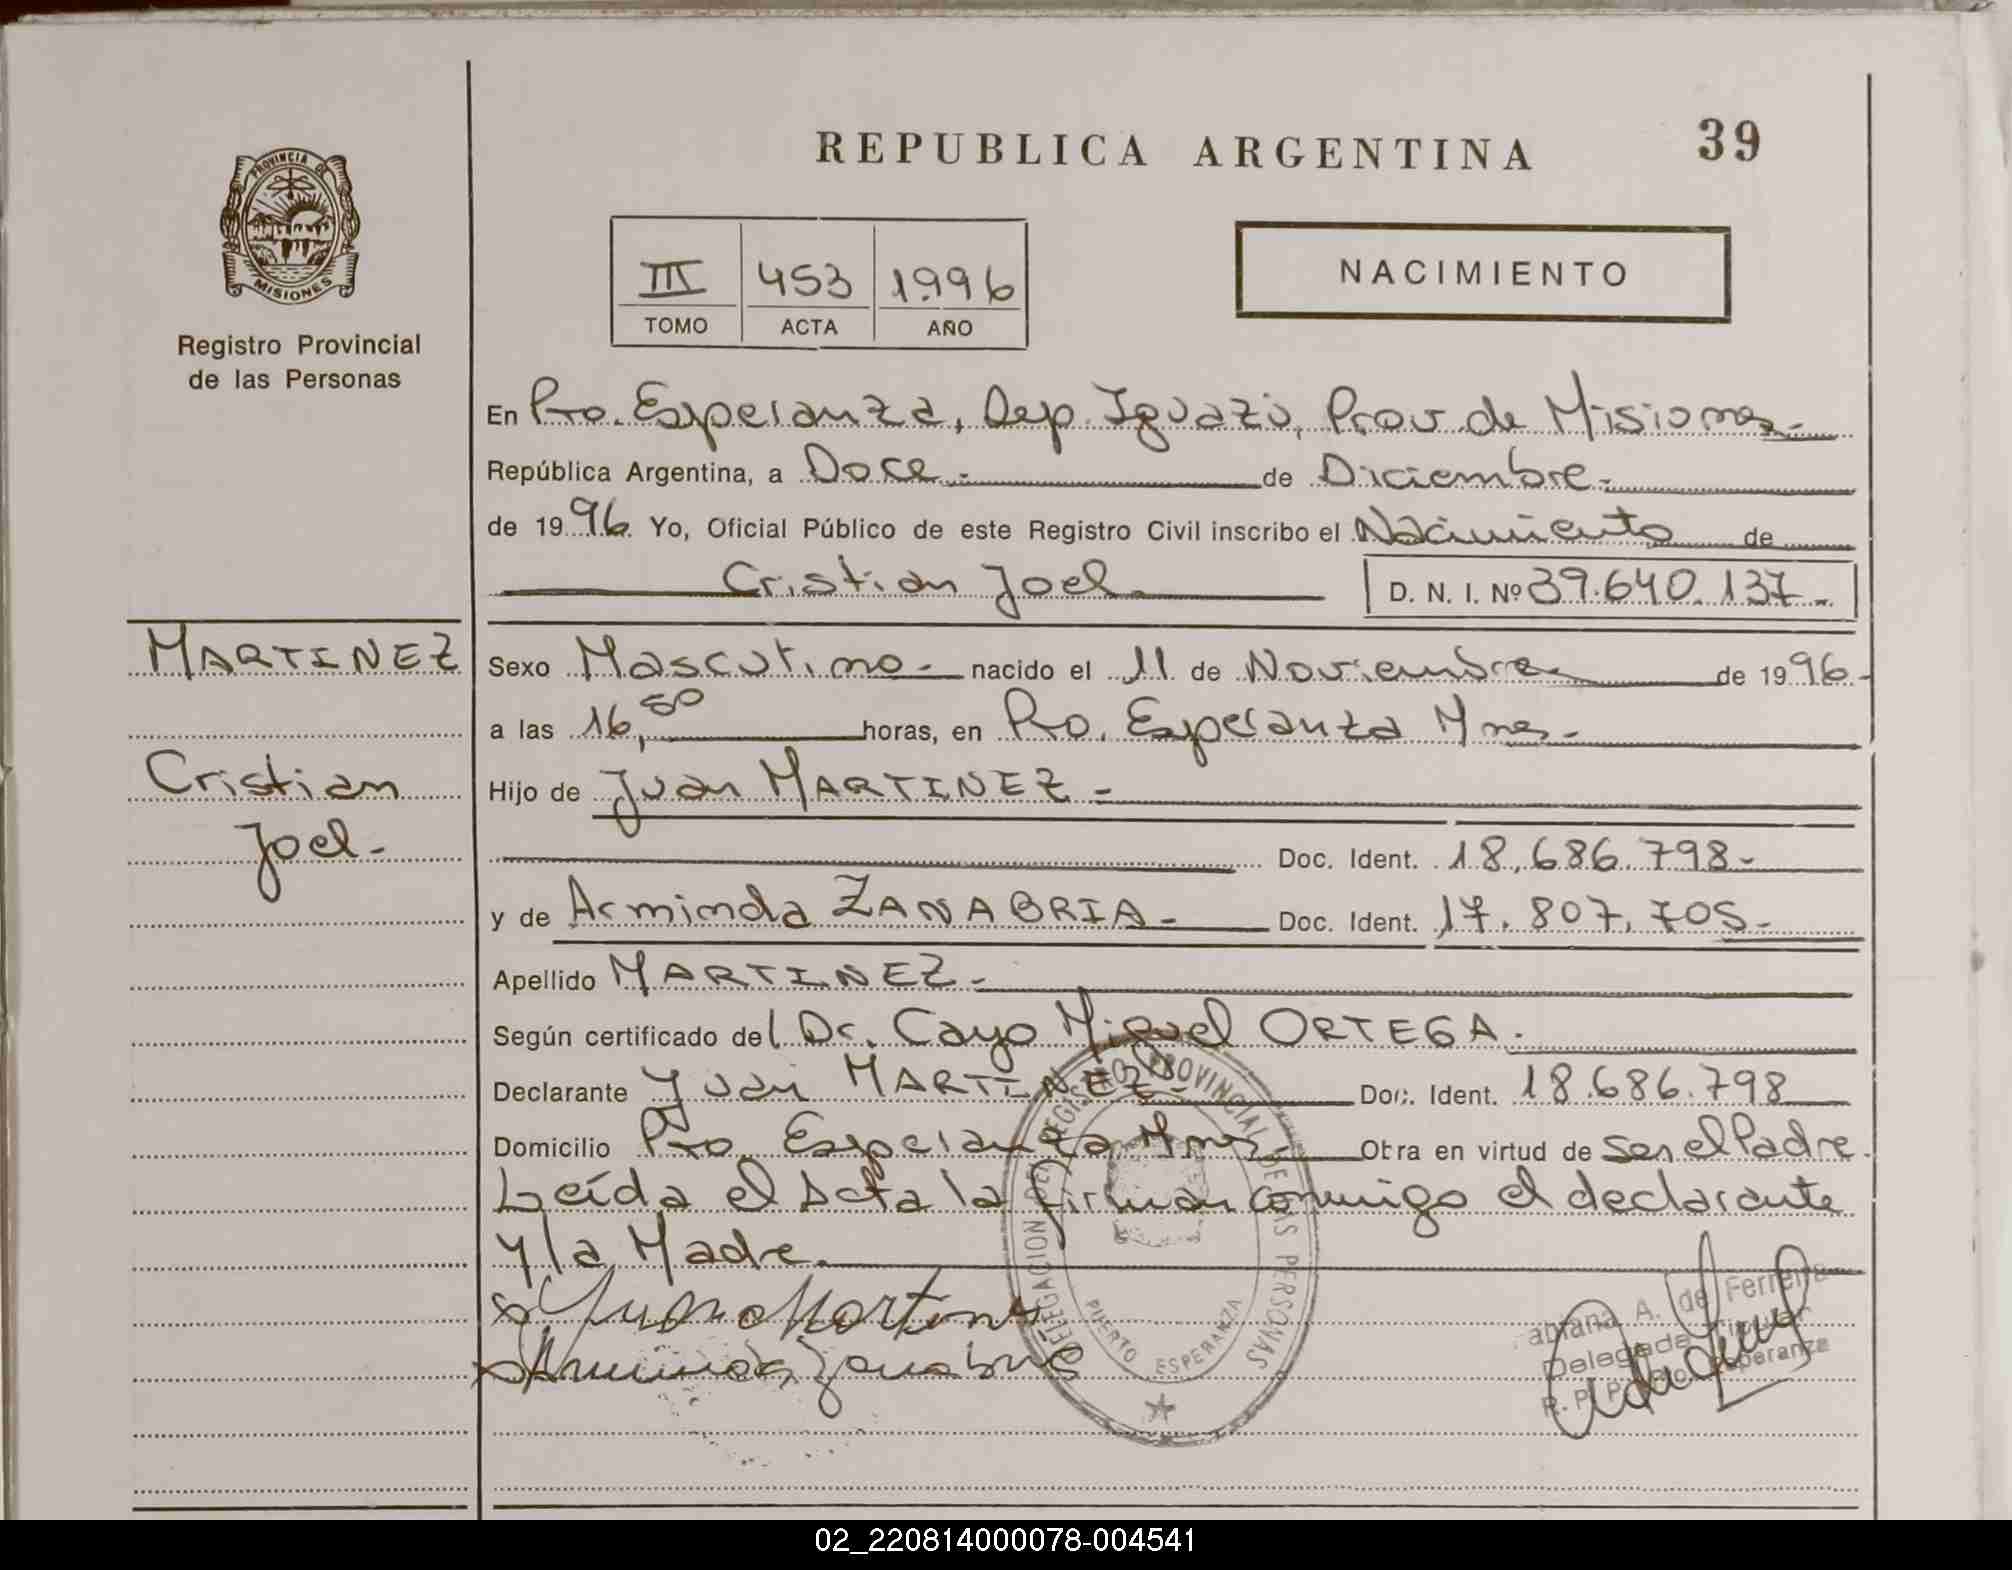 REPUBLICA ARGENTINA 39
PROVINCIA DE
MISIONES
Registro Provincial
de las Personas
III 453 1996
TOMO ACTA AÑO
NACIMIENTO
En Pto. Esperanza, Dep. Iguazú, Prov de Misiones.-
República Argentina, a Doce.- de Diciembre.-
de 1996. Yo, Oficial Público de este Registro Civil inscribo el Nacimiento de
Cristian Joel. D. N. I. Nº 39.640.137.-
MARTINEZ
Cristian
Joel.-
Sexo Masculino.- nacido el 11 de Noviembre.- de 1996.-
a las 16,50 horas, en Pto. Esperanza Mnes.-
Hijo de Juan MARTINEZ.-
Doc. Ident. 18.686.798.-
y de Arminda ZANABRIA.- Doc. Ident. 17.807.705.-
Apellido MARTINEZ.-
Según certificado del Dr. Cayo Miguel ORTEGA.
Declarante Juan MARTINEZ.- Doc. Ident. 18.686.798
Domicilio Pto. Esperanza Mnes. Otra en virtud de ser el Padre.
Leída el Acta la firman conmigo el declarante
y la Madre.
Juan Martinez
Arminda Zanabria
DELEGACION DEL REGISTRO PROVINCIAL DE LAS PERSONAS
PUERTO ESPERANZA
A. de Ferreira
Delegada Titular
R. P. P. Pto. Esperanza
02_220814000078-004541